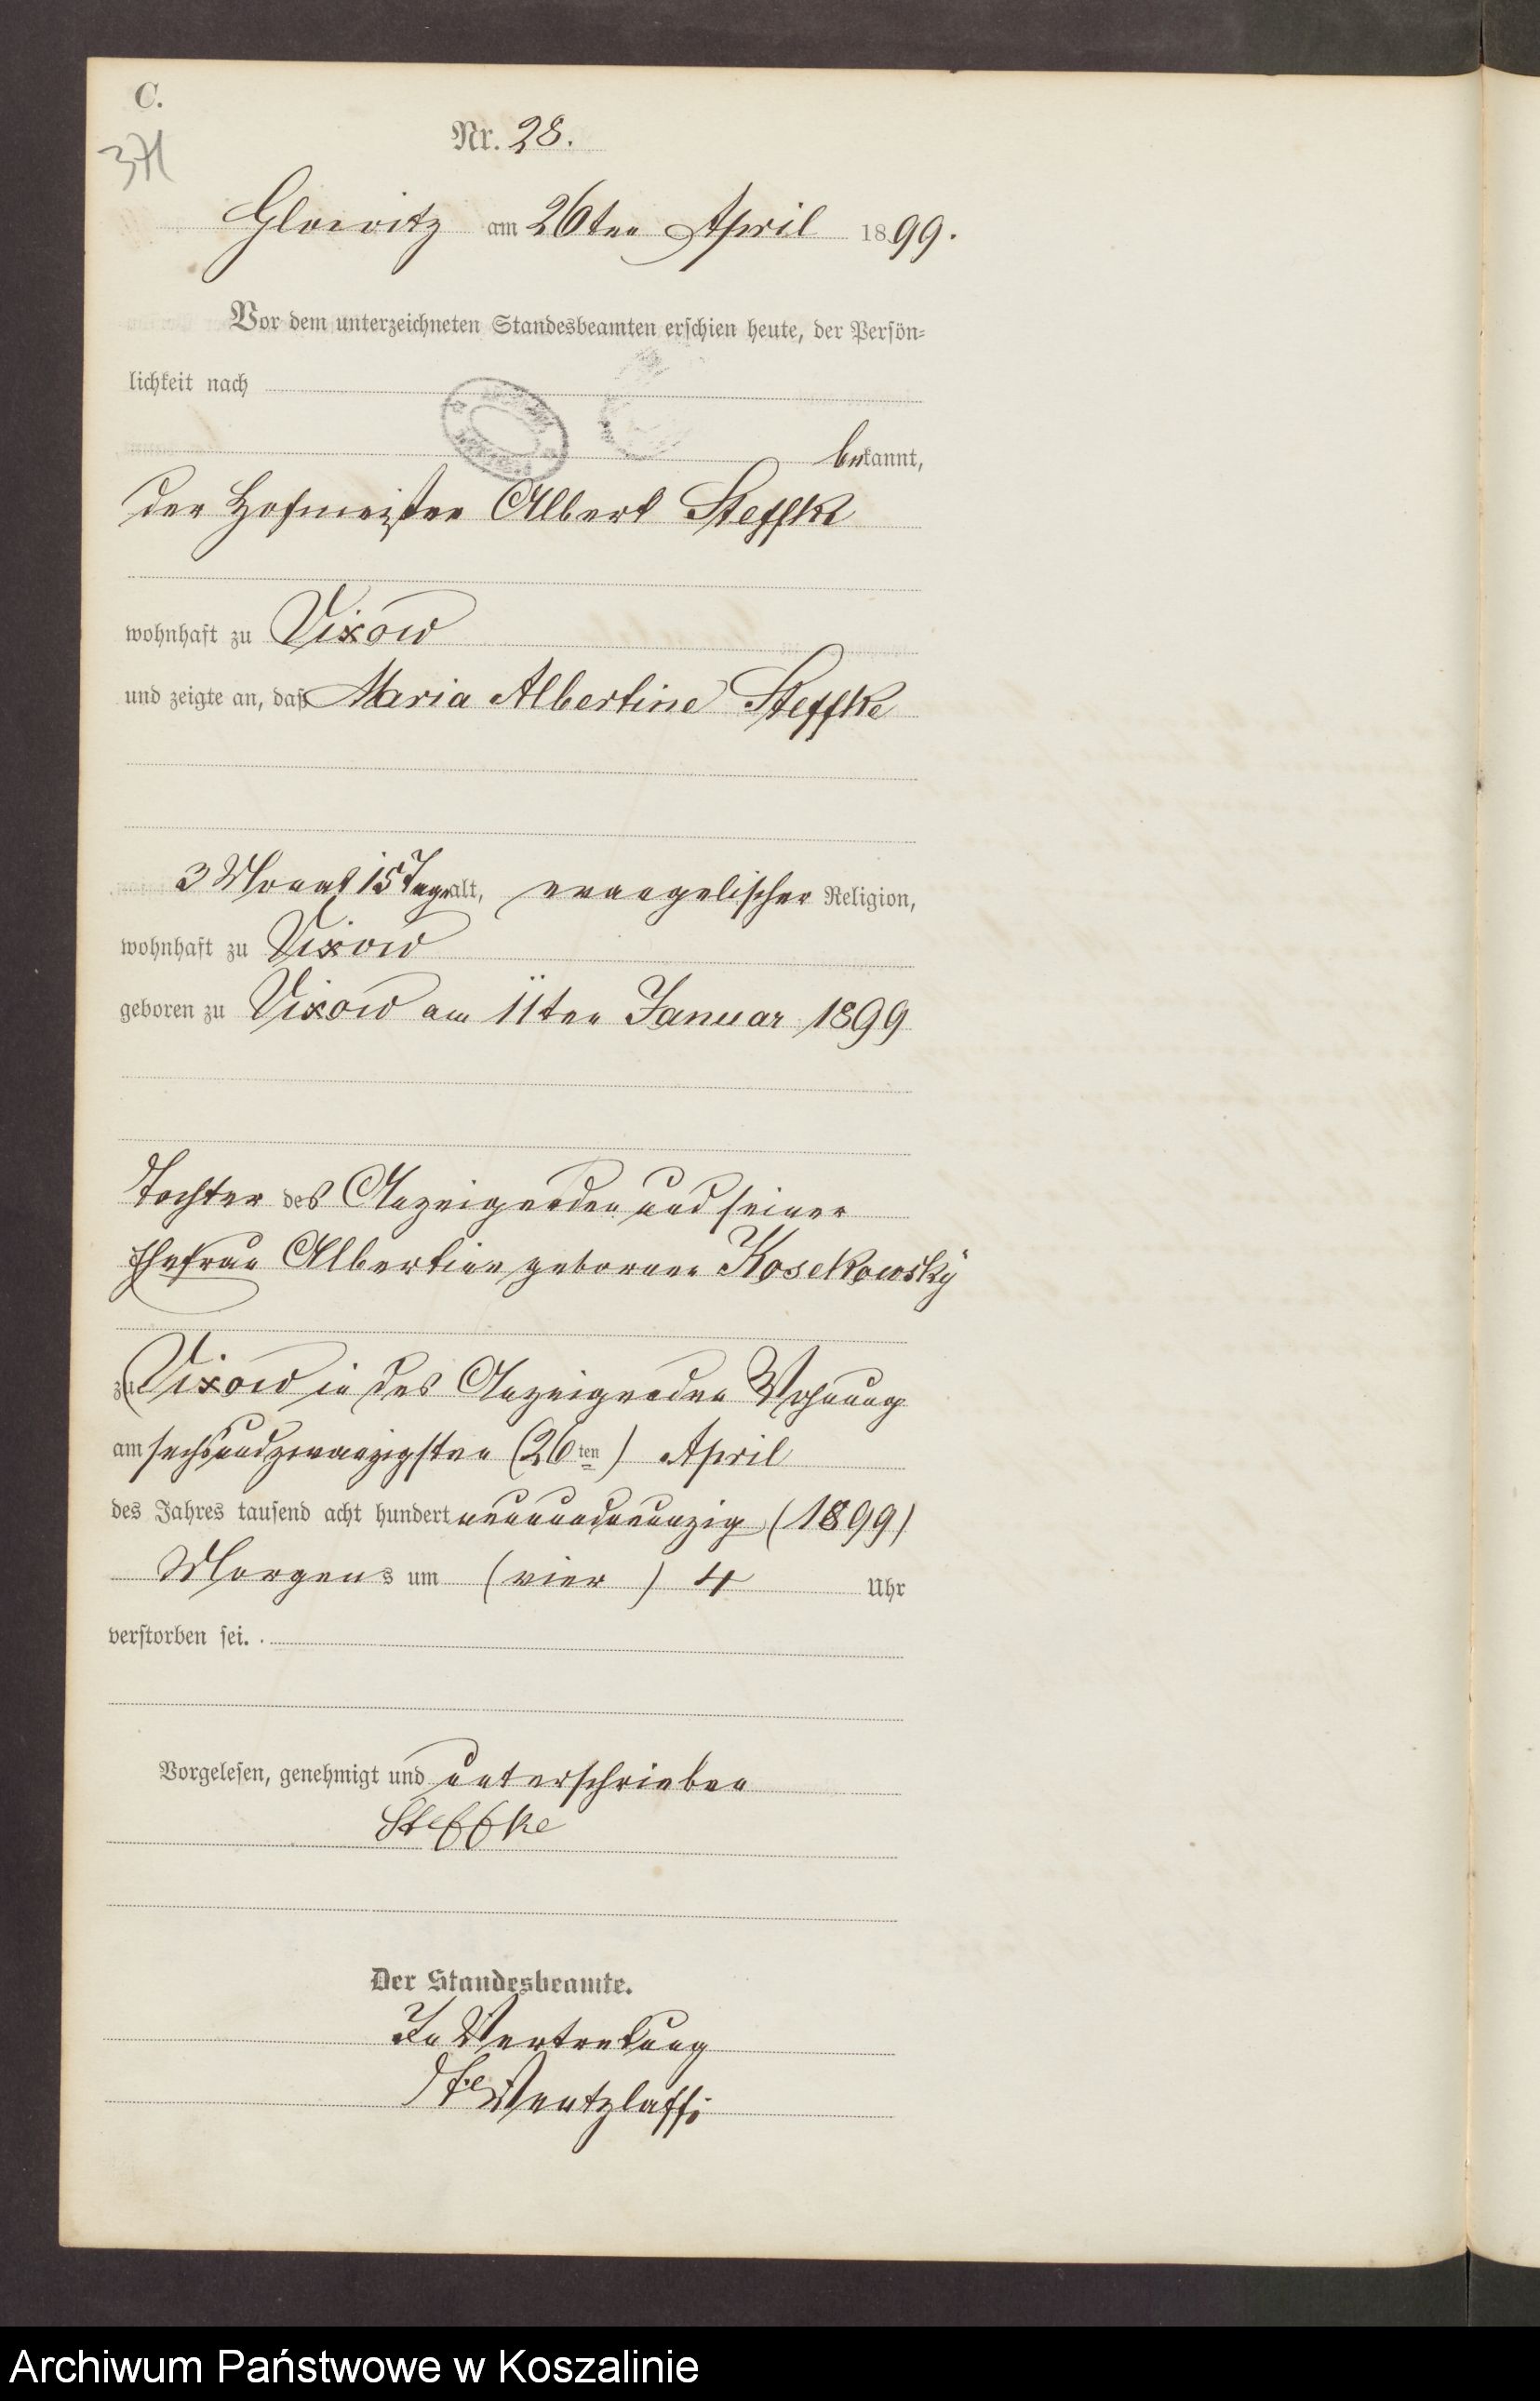 C.
371
Nr. 28.
Glowitz am 26ten April 1899.
Vor dem unterzeichneten Standesbeamten erschien heute, der Persön-
lichkeit nach
bekannt,
der Hofmeister Albert Steffke
wohnhaft zu Vixow
und zeigte an, daß Maria Albertine Steffke
3 Monat 15 Tage alt, evangelischer Religion,
wohnhaft zu Vixow
geboren zu Vixow am 11ten Januar 1899
Tochter des Anzeigenden und seiner
Ehefrau Albertine geborenen Kosekowsky
zu Vixow in des Anzeigenden Wohnung
am sechsundzwanzigsten (26ten) April
des Jahres tausend acht hundert neunundneunzig (1899)
Morgens um (vier) 4 Uhr
verstorben sei.
Vorgelesen, genehmigt und unterschrieben
Steffke
Der Standesbeamte.
In Vertretung
Wentzlaff
Archiwum Państwowe w Koszalinie